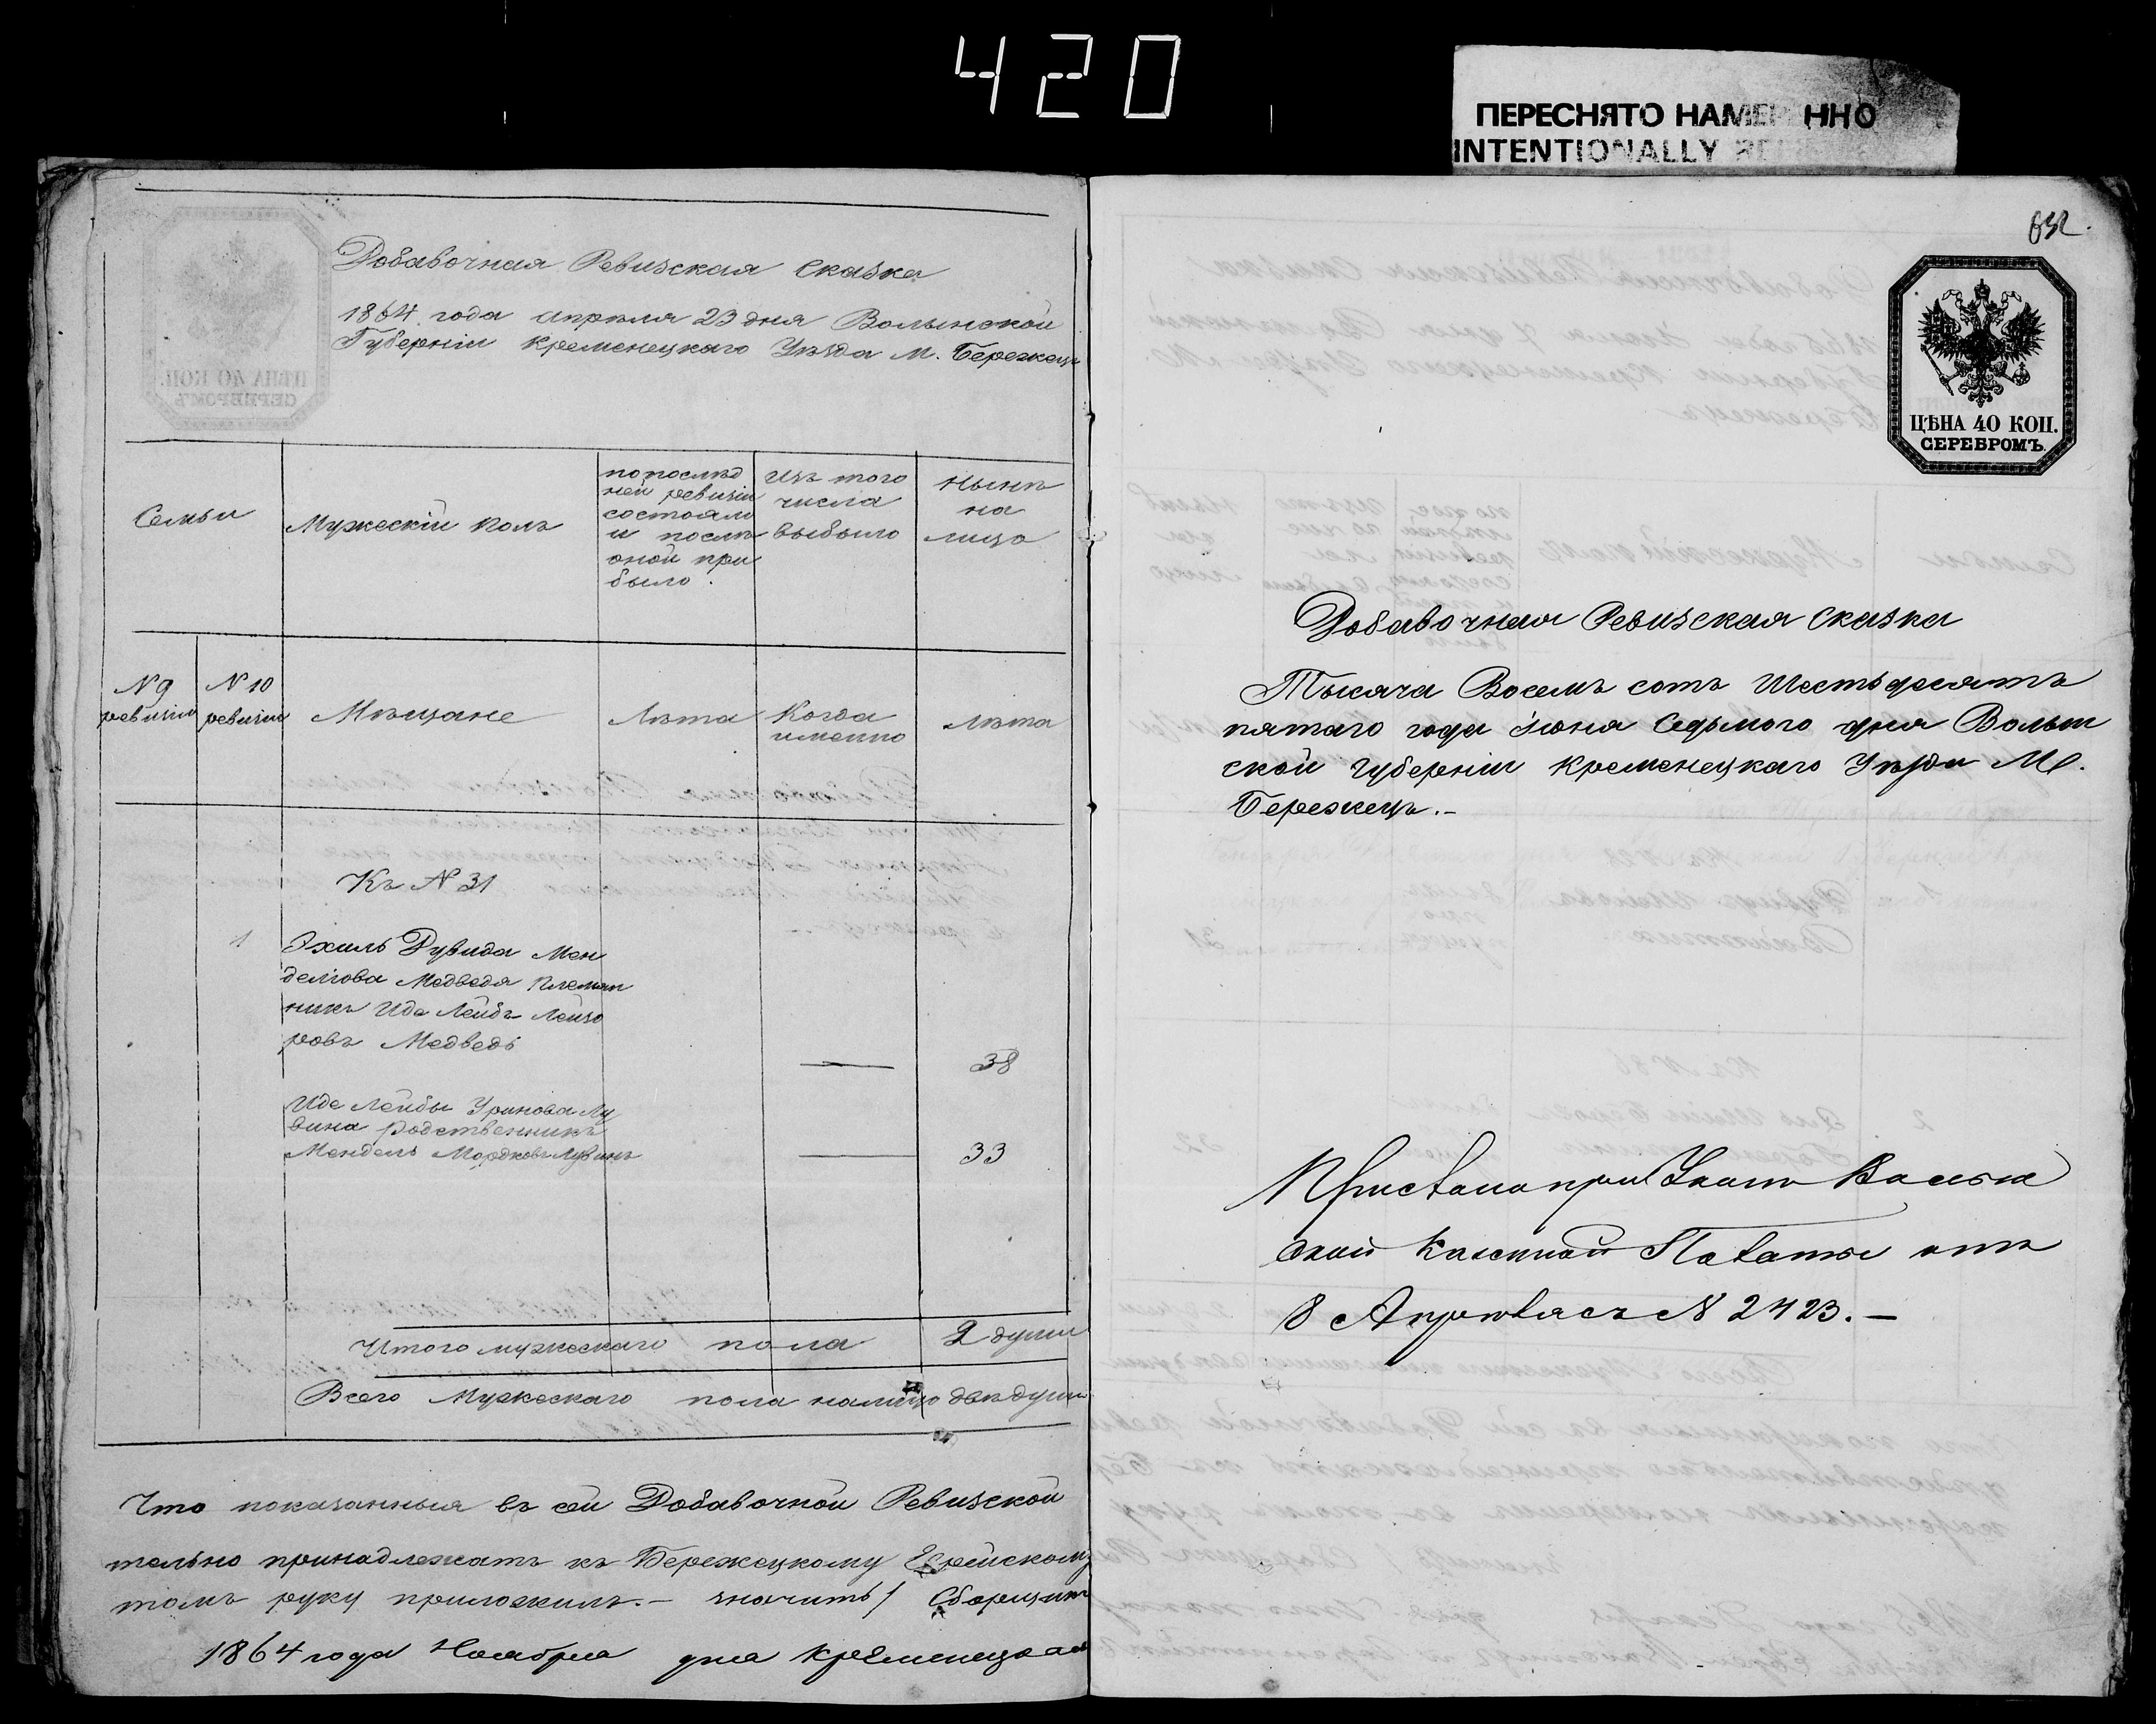 420
ПЕРЕСНЯТО НАМЕР ННО
INTENTIONALLY
Добавочная Ревизская Сказка
1864 года апрѣля 23 дня Волынской
Губерніи Кременецкаго Уѣзда М. Бережецъ
Семьи
Мужескій полъ
по послѣд
ней ревизіи
состояло
и послѣ
оной при
было.
Изъ того
числа
выбыло
Нынѣ
на
лицо
№ 9
ревизіи
№ 10
ревизіи
Мѣщане
Лѣта
Когда
именно
Лѣта
Къ № 31
1 Эхиль Дувида Мен
делiова Медведя Племян
никъ Иде Лейбъ Лейзо
ровъ Медведь — 38
Иде Лейбы Уринова Лу
вина родственникъ
Мендель Мордковъ Лувинъ — 33
Итого мужескаго пола 2 души
Всего Мужескаго пола налицо двѣ души
Что показанныя въ сей Добавочной Ревизской
тельно принадлежатъ къ Бережецкому Еврейскому
томъ руку приложилъ.— значитъ/ Сборщикъ
1864 года Ноября дня Кременецкая
632.
ЦѢНА 40 КОП.
СЕРЕБРОМЪ.
Добавочная Ревизская Сказка
Тысяча Восемъ сотъ Шестьдесятъ
пятаго года Іюня Седьмого дня Волын
ской Губерніи Кременецкаго Уѣзда М.
Бережецъ.—
При Указѣ Волын
ской Казенной Палаты отъ
8 Апрѣля съ № 2423.—